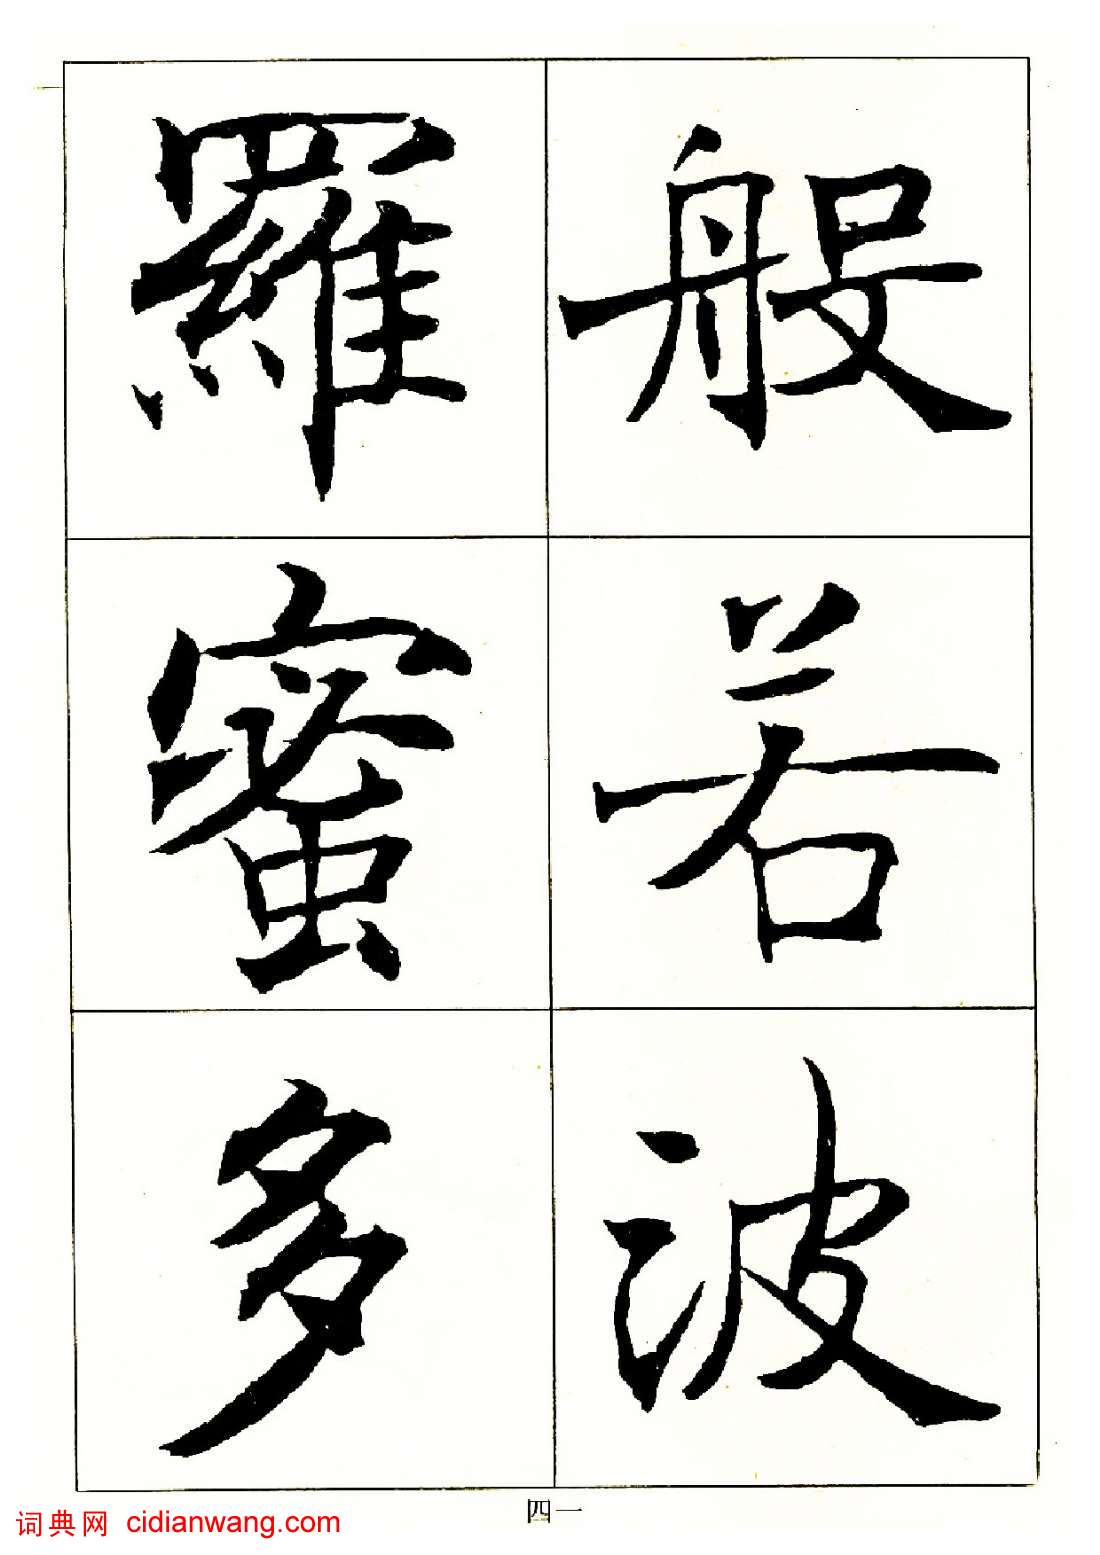 般若波
羅蜜多
四一
词典网 cidianwang.com